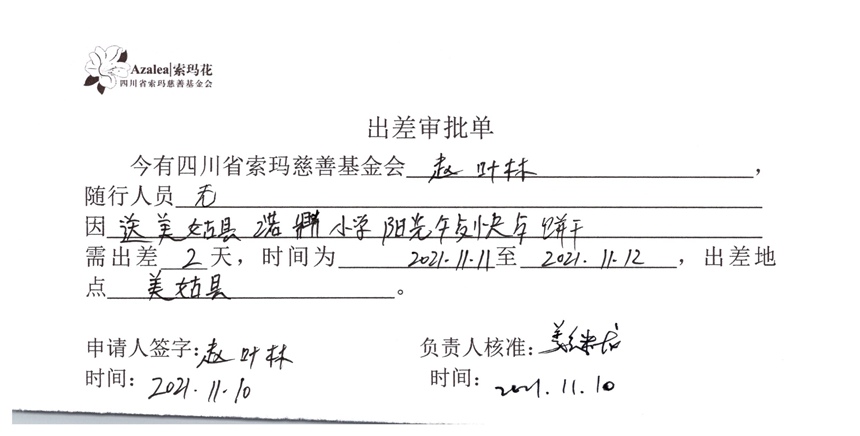 Azalea|索玛花
四川省索玛慈善基金会
出差审批单
今有四川省索玛慈善基金会 赵叶林 ，
随行人员 无
因 送美姑县 小学阳光午点 饼干
需出差 2 天，时间为 2021.11.11 至 2021.11.12 ，出差地
点 美姑县 。
申请人签字：赵叶林 负责人核准：
时间：2021.11.10 时间：2021.11.10